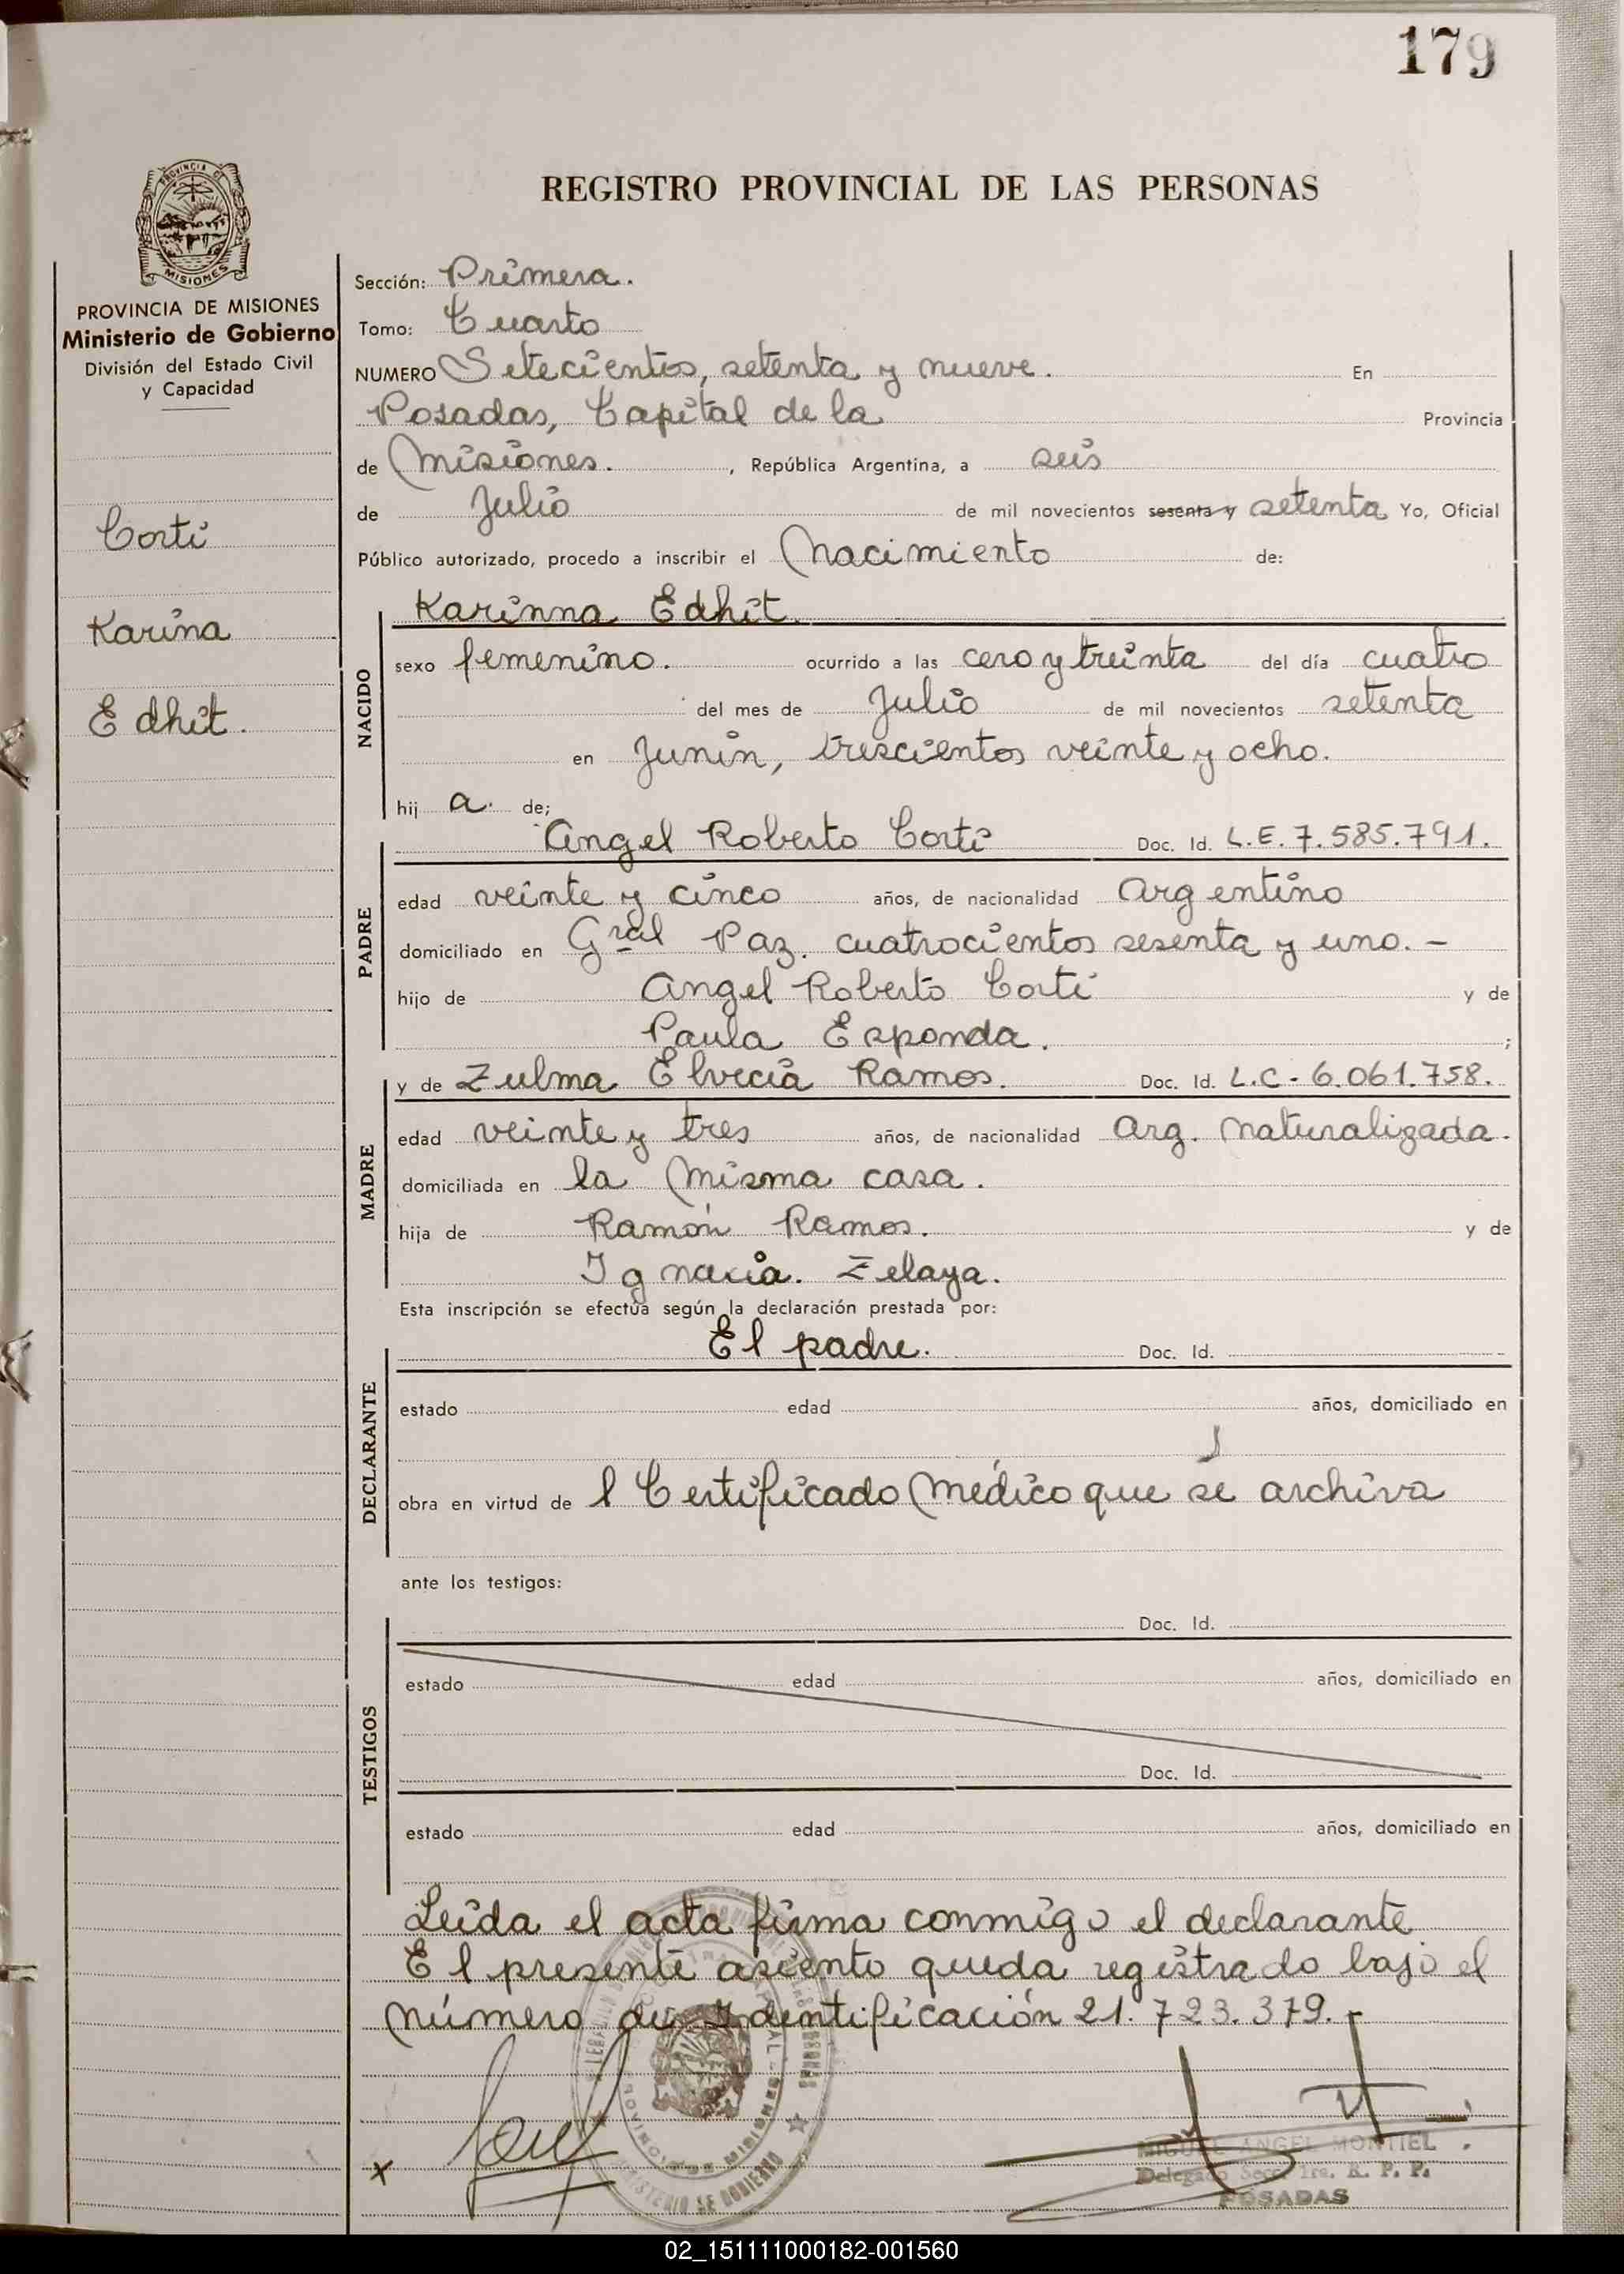 179
PROVINCIA DE
MISIONES
REGISTRO PROVINCIAL DE LAS PERSONAS
PROVINCIA DE MISIONES
Ministerio de Gobierno
División del Estado Civil
y Capacidad
Corti
Karina
Edhit.
Sección: Primera.
Tomo: Cuarto
NUMERO Setecientos, setenta y nueve. En
Posadas, Capital de la Provincia
de Misiones. , República Argentina, a seis
de Julio de mil novecientos sesenta y setenta Yo, Oficial
Público autorizado, procedo a inscribir el Nacimiento de:
Karinna Edhit.
NACIDO
sexo femenino. ocurrido a las cero y treinta del día cuatro
del mes de Julio de mil novecientos setenta
en Junín, trescientos veinte y ocho.
hij a. de;
Angel Roberto Corti Doc. Id. L.E. 7.585.791.
PADRE
edad veinte y cinco años, de nacionalidad Argentino
domiciliado en Gral Paz. cuatrocientos sesenta y uno. -
hijo de Angel Roberto Corti y de
Paula Esponda. ;
y de Zulma Elvecia Ramos. Doc. Id. L.C- 6.061.758.
MADRE
edad veinte y tres años, de nacionalidad Arg. Naturalizada.
domiciliada en la Misma casa.
hija de Ramón Ramos. y de
Ignacia. Zelaya.
Esta inscripción se efectúa según la declaración prestada por:
El padre. Doc. Id.
DECLARANTE
estado edad años, domiciliado en
obra en virtud de l Certificado Médico que se archiva
ante los testigos:
Doc. Id.
TESTIGOS
estado edad años, domiciliado en
Doc. Id.
estado edad años, domiciliado en
Leida el acta firma conmigo el declarante
El presente asiento queda registrado bajo el
Número de Identificación 21.723.379.-
PROVINCIA DE MISIONES
MINISTERIO DE GOBIERNO
x
MIGUEL ANGEL MONTIEL
Delegado Secc. 1ra. R. P. P.
POSADAS
02_151111000182-001560